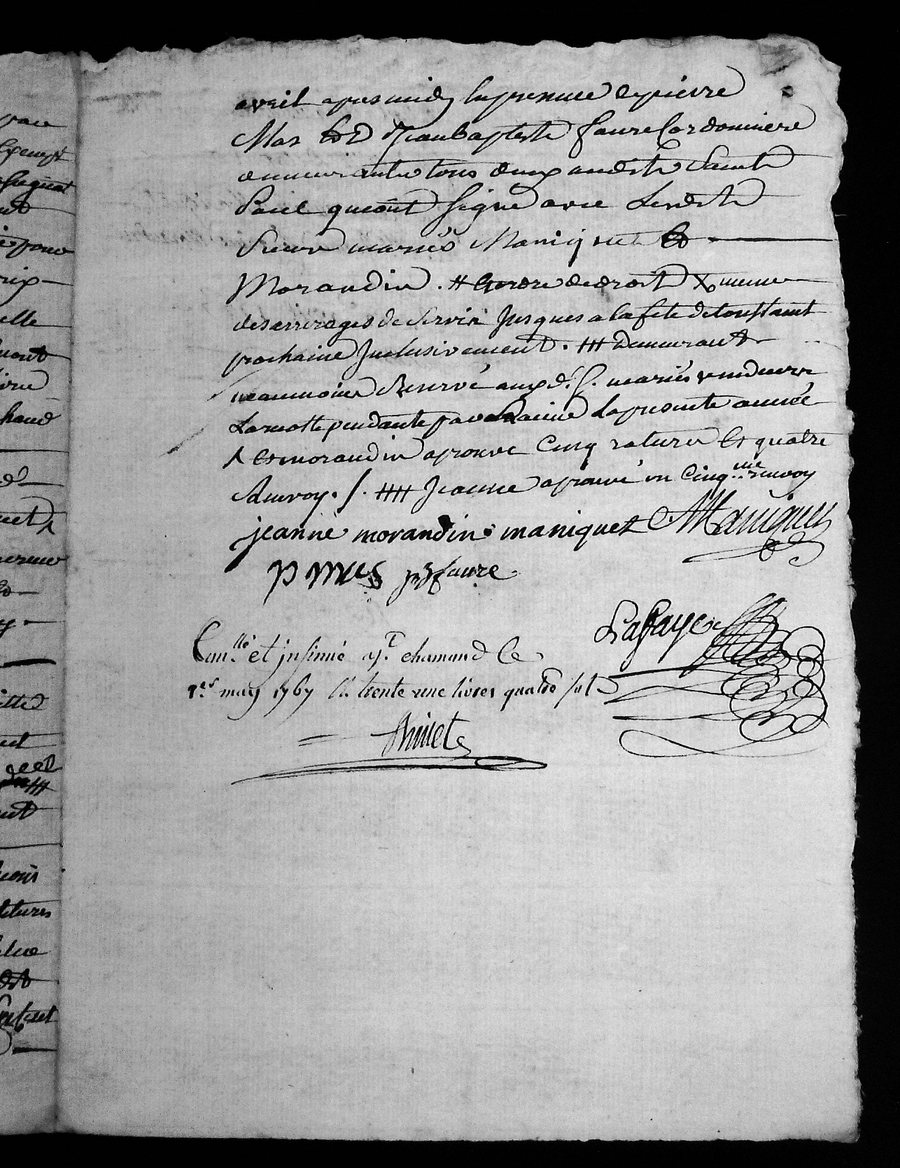 avril apres midy En presence de pierre
Mas Et de Jean Baptiste faure Cordonniers
demeurants tous deux audit Saint
Paul qui ont signé avec Lesdits
Sieurs mariés Maniquet Et
Morandin. # Et ordre de droit X mesme
des arrerages de servis Jusques a la fete de toussaint
prochaine Inclusivement. ### demeurant
neanmoins Reservé auxd. s. mariés vendeurs
La presente année
Et morandin aprouvé Cinq ratures Et quatre
Renvoy. /. #### Jeanne aprouvé un Cinq.me renvoy
jeanne morandin maniquet AManiquet
p mas jb faure
Lafaye
Con.llé et insinué a st chamand le
1er may 1767 R. trente une livres quatre sols